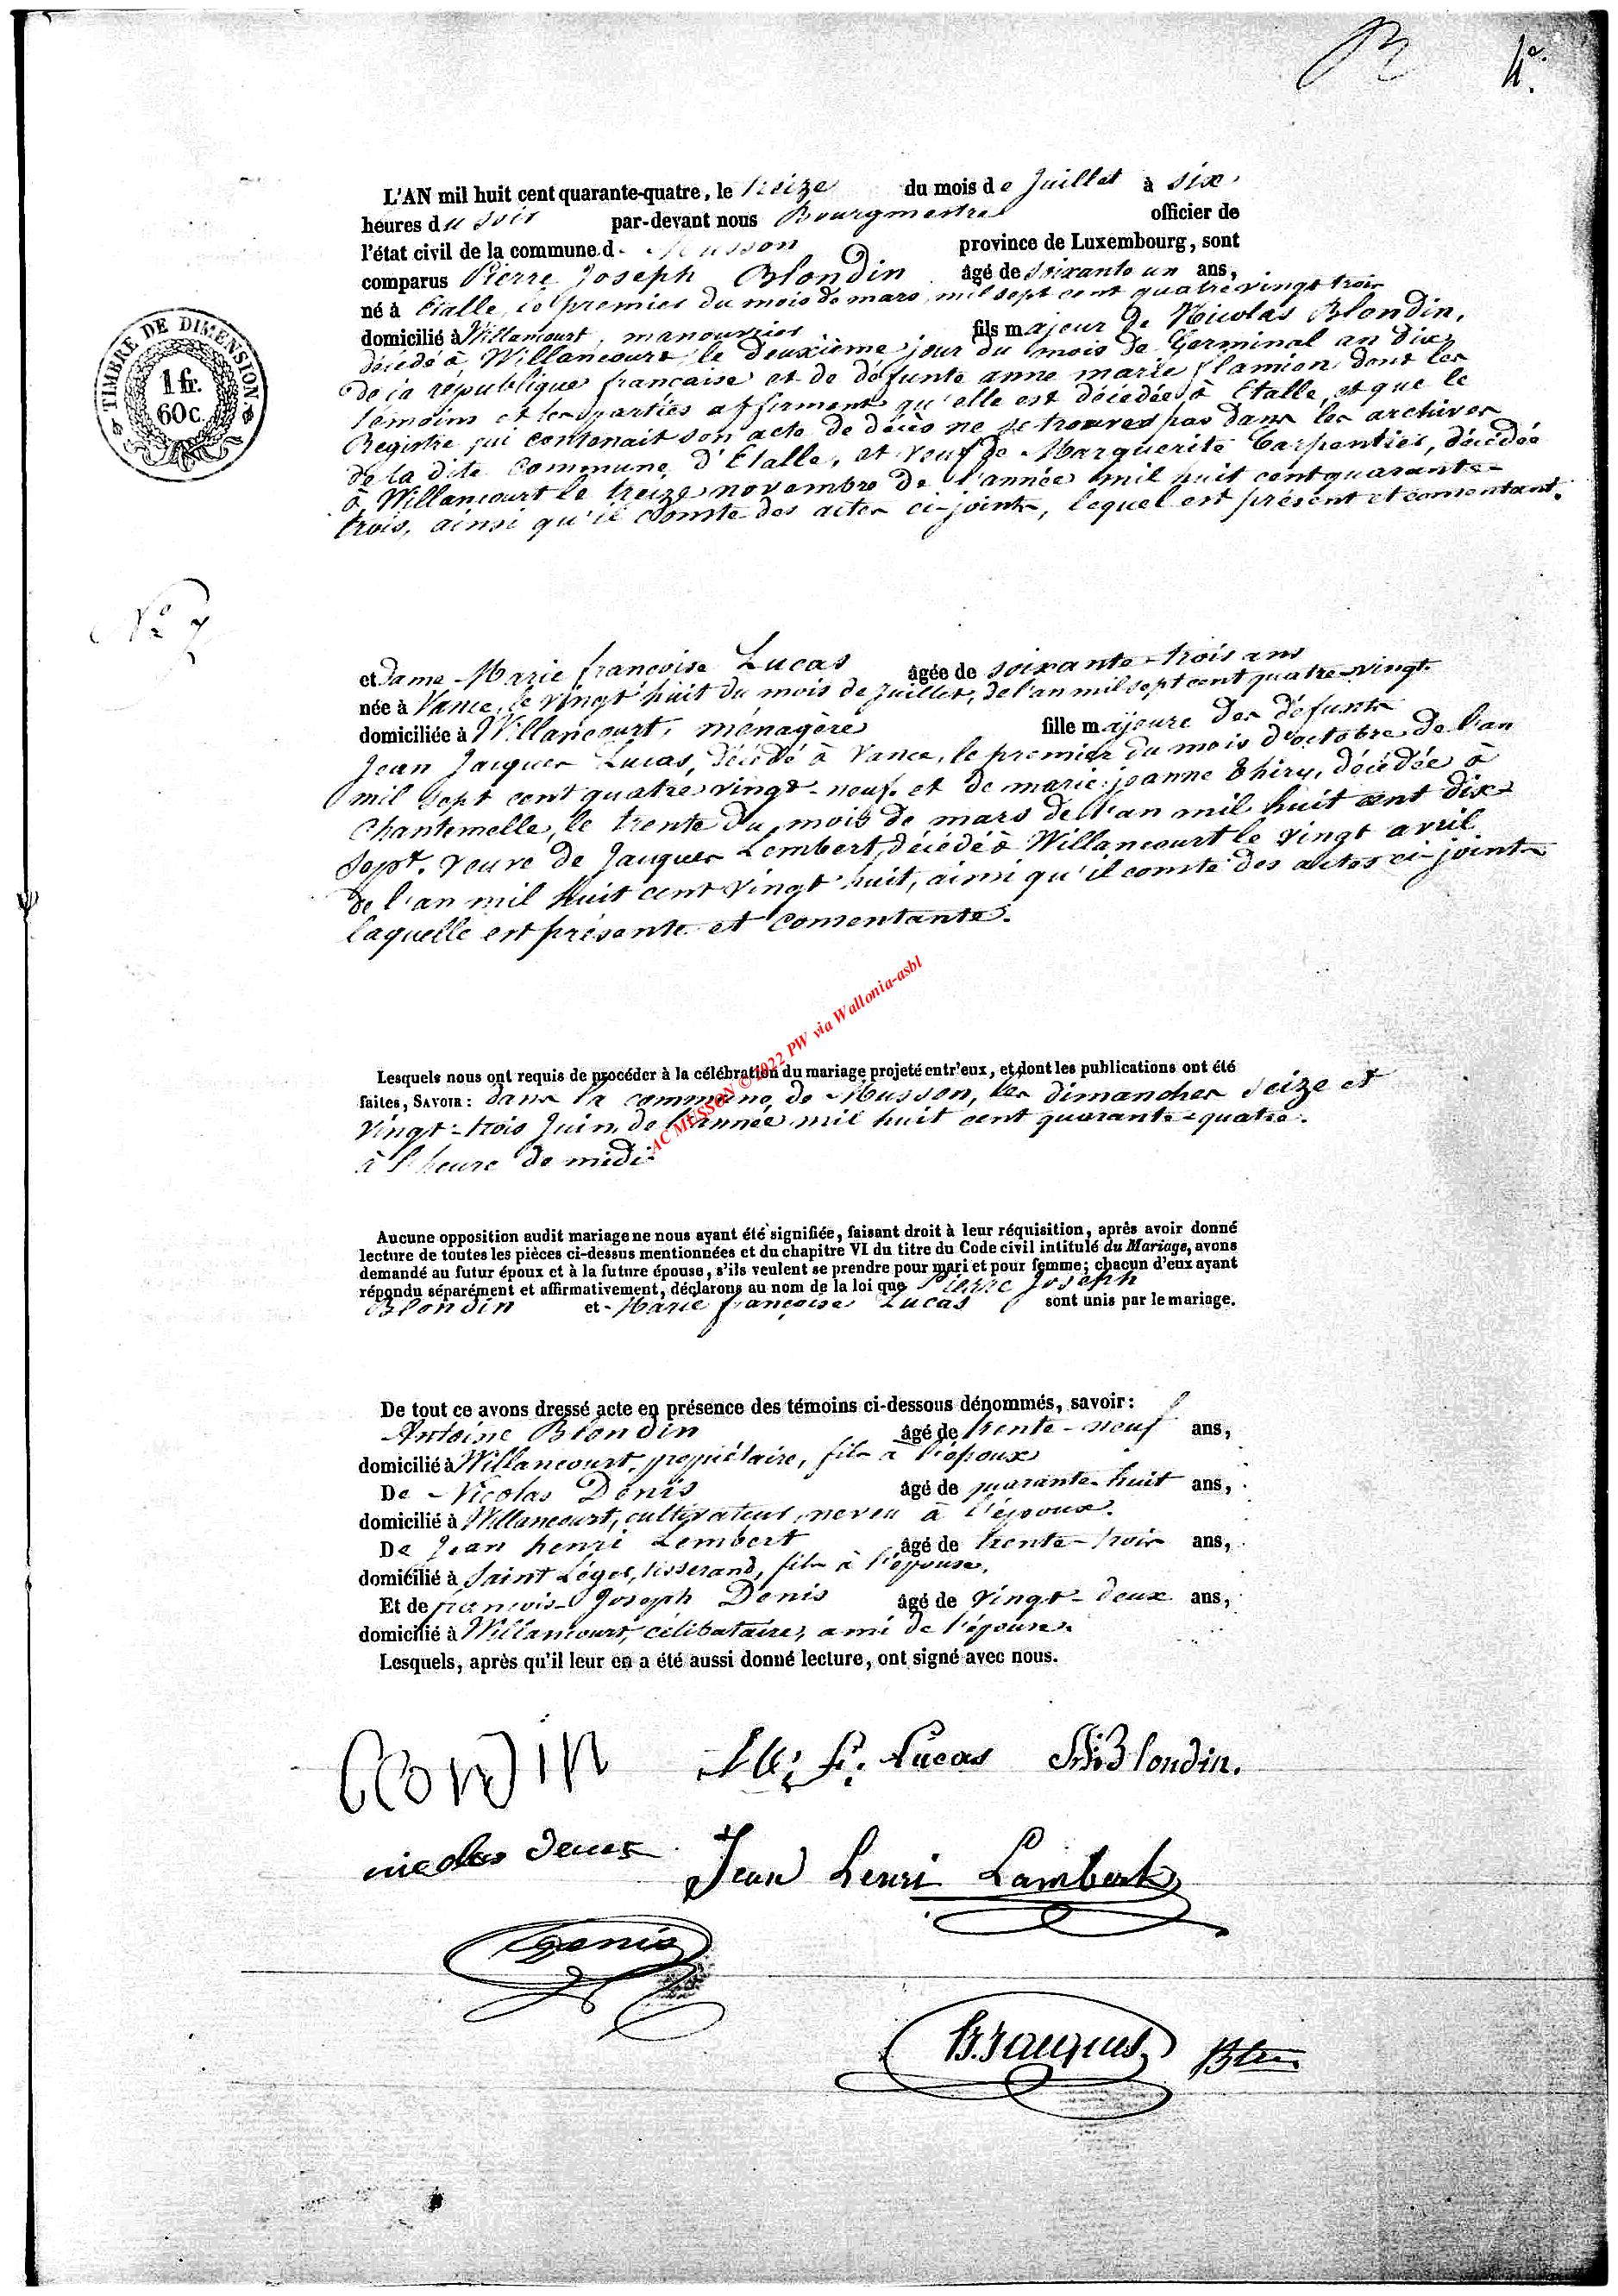 4e.
L'AN mil huit cent quarante-quatre, le treize du mois de Juillet à six
heures du soir par-devant nous Bourgmestre officier de
l'état civil de la commune d Musson province de Luxembourg, sont
comparus Pierre Joseph Blondin âgé de soixante un ans,
né à Etalle, le premier du mois de mars, mil sept cent quatre vingt trois
domicilié à Willancourt, manouvrier fils majeur de Nicolas Blondin,
décédé à Willancourt le deuxième jour du mois de Germinal an dix
de la république française et de défunte anne marie flamion dont les
témoins et les parties affirment qu'elle est décédée à Etalle, et que le
Registre qui contenait son acte de décès ne se trouve pas dans les archives
de la dite commune d'Etalle, et veuf de Marguerite Carpentier, décédée
à Willancourt le treize novembre de l'année mil huit cent quarante-
trois, ainsi qu'il conste des actes ci-joints, lequel est présent et consentant.
TIMBRE DE DIMENSION
1 fr.
60 c.
No 7
et Dame Marie françoise Lucas âgée de soixante-trois ans
née à Vance, le vingt huit du mois de Juillet, de l'an mil sept cent quatre-vingt
domiciliée à Willancourt, ménagère fille majeure des défunts
Jean Jacques Lucas, décédé à Vance, le premier du mois d'octobre de l'an
mil sept cent quatre vingt-neuf et de marie jeanne Thiry, décédée à
Chantemelle, le trente du mois de mars de l'an mil huit cent dix-
sept. veuve de Jacques Lembert, décédé à Willancourt le vingt avril
de l'an mil huit cent vingt huit, ainsi qu'il conste des actes ci-joints
laquelle est présente et consentante.
AC MUSSON © 2022 PW via Wallonia-asbl
Lesquels nous ont requis de procéder à la célébration du mariage projeté entr'eux, et dont les publications ont été
faites, SAVOIR : dans la commune de Musson, les dimanches seize et
vingt-trois Juin, de l'année mil huit cent quarante-quatre.
à l'heure de midi.
Aucune opposition audit mariage ne nous ayant été signifiée, faisant droit à leur réquisition, après avoir donné
lecture de toutes les pièces ci-dessus mentionnées et du chapitre VI du titre du Code civil intitulé du Mariage, avons
demandé au futur époux et à la future épouse, s'ils veulent se prendre pour mari et pour femme ; chacun d'eux ayant
répondu séparément et affirmativement, déclarons au nom de la loi que Pierre Joseph
Blondin et Marie françoise Lucas sont unis par le mariage.
De tout ce avons dressé acte en présence des témoins ci-dessous dénommés, savoir :
Antoine Blondin âgé de trente-neuf ans,
domicilié à Willancourt, propriétaire, fils à l'époux
De Nicolas Denis âgé de quarante-huit ans,
domicilié à Willancourt, cultivateur, neveu à l'époux.
De Jean henri Lembert âgé de trente-trois ans,
domicilié à Saint Léger, tisserand, fils à l'épouse.
Et de francois Joseph Denis âgé de vingt-deux ans,
domicilié à Willancourt, célibataire, ami de l'épouse.
Lesquels, après qu'il leur en a été aussi donné lecture, ont signé avec nous.
Blondin M. f. Lucas Blondin.
nicolas Denis Jean henri Lambert
Denis
Jacques Btre